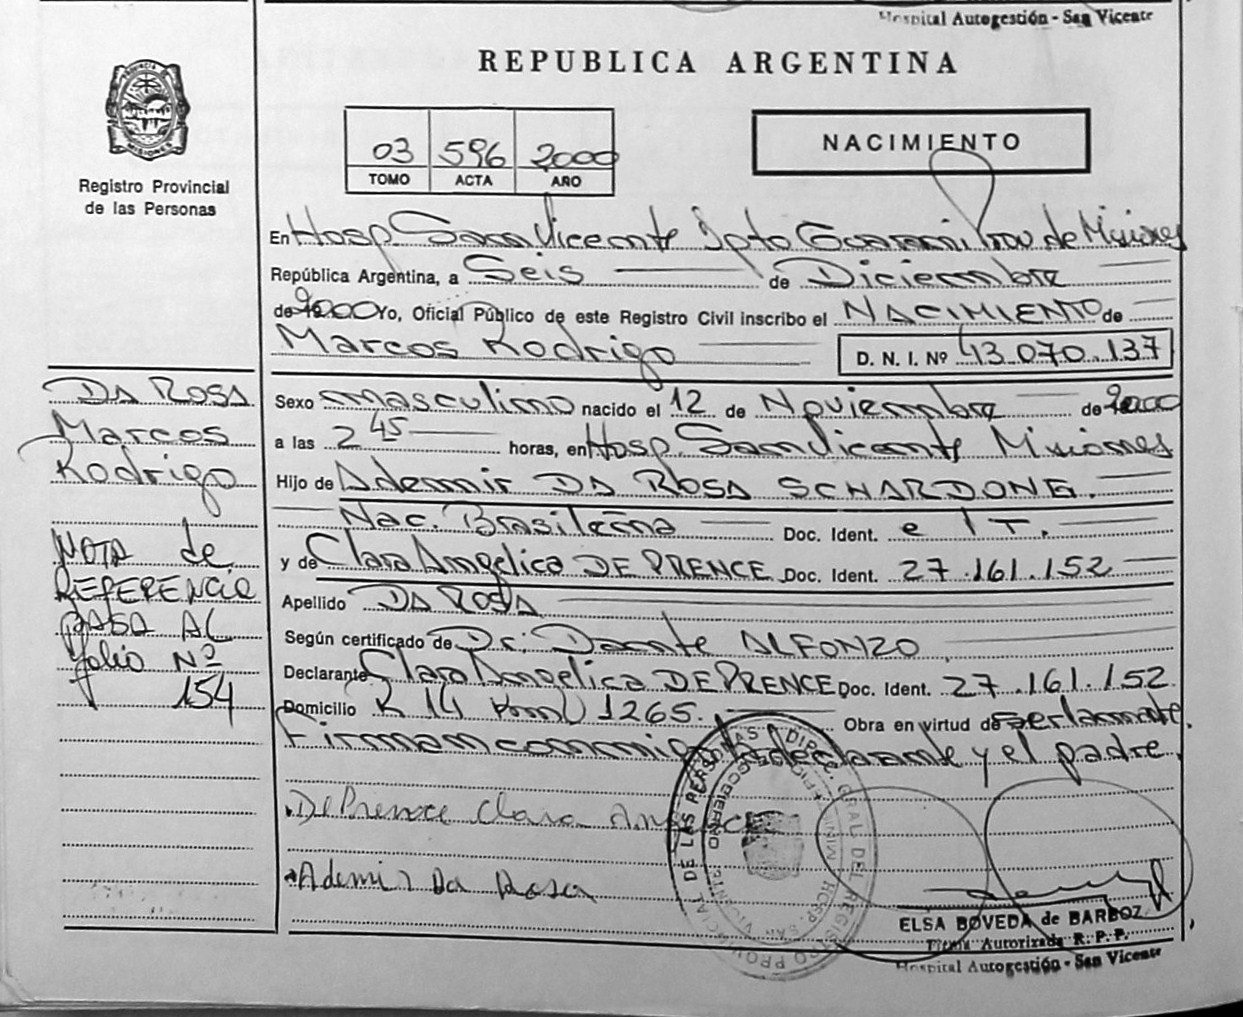 Hospital Autogestión - San Vicente
REPUBLICA ARGENTINA
PROVINCIA DE MISIONES
Registro Provincial
de las Personas
03 596 2000
TOMO ACTA AÑO
NACIMIENTO
En Hosp. San Vicente Dpto Guaraní Prov de Misiones
República Argentina, a Seis de Diciembre
de 2000 Yo, Oficial Público de este Registro Civil inscribo el NACIMIENTO de
Marcos Rodrigo D. N. I. Nº 43.070.137
Sexo masculino nacido el 12 de Noviembre de 2000
a las 2 45 horas, en Hosp. San Vicente Misiones
Hijo de Ademir DA ROSA SCHARDONG.
Nac. Brasileña Doc. Ident. e 1 T.
y de Clara Angelica DE PRENCE Doc. Ident. 27.161.152
Apellido DA ROSA
Según certificado de Dr. Dante ALFONZO
Declarante Clara Angelica DE PRENCE Doc. Ident. 27.161.152
Domicilio R 14 Km 1265. Obra en virtud de ser la madre.
Firman conmigo la declarante y el padre.
De Prence Clara Angelica
Ademir Da Rosa
DA ROSA
Marcos
Rodrigo
NOTA de
REFERENCIA
PASA AL
folio Nº
154
DIRC. GRAL DEL REGISTRO PROVINCIAL DE LAS PERSONAS
HOSP. SAN VICENTE
ELSA BOVEDA de BARBOZ
Firma Autorizada R. P. P.
Hospital Autogestión - San Vicente